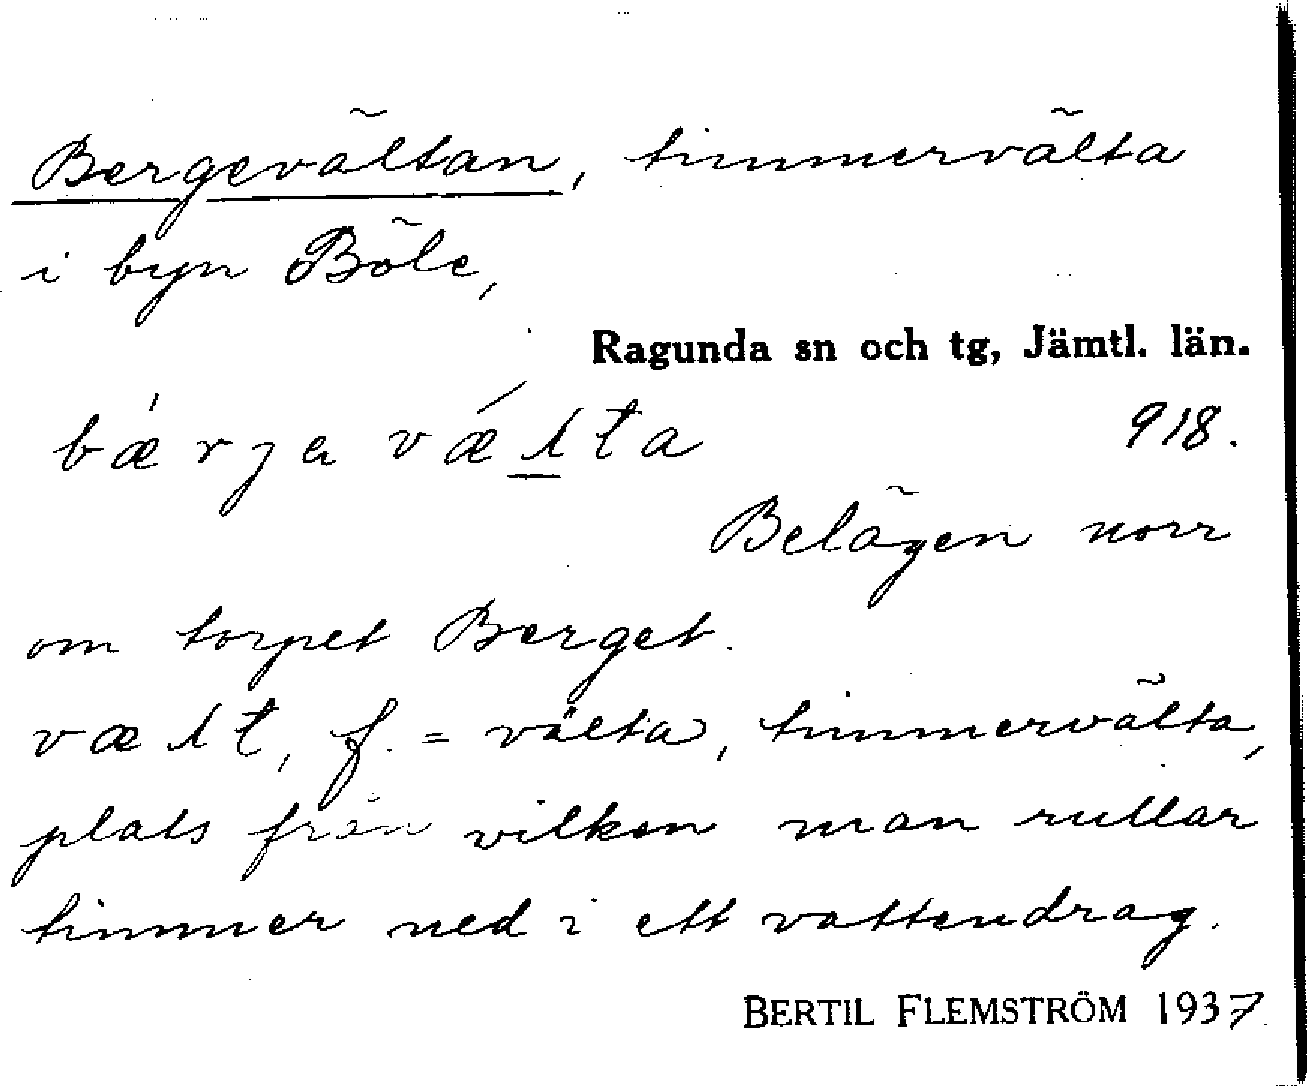 Bergevältan, timmervälta
i byn Böle,
Ragunda sn och tg, Jämtl. län.
918.
Belägen norr
om torpet Berget.
f. = välta, timmervälta,
plats från vilken man rullar
timmer ned i ett vattendrag.
BERTIL FLEMSTRÖM 1937